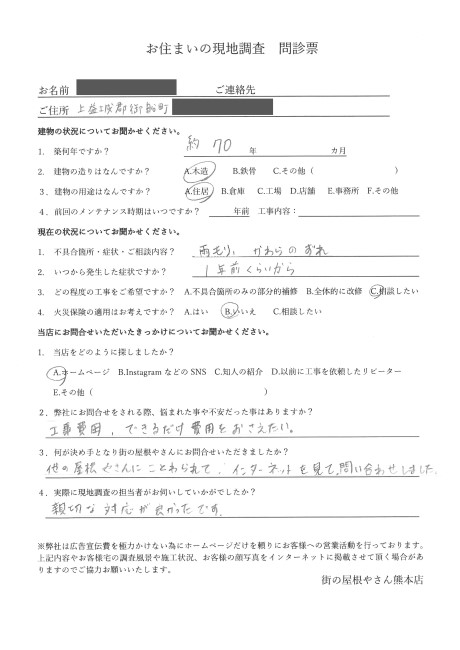 お住まいの現地調査 問診票
お名前 ご連絡先
ご住所 上益城郡御船町
建物の状況についてお聞かせください。
1. 築何年ですか? 約 70 年 カ月
2. 建物の造りはなんですか? A.木造 B.鉄骨 C.その他( )
3. 建物の用途はなんですか? A.住居 B.倉庫 C.工場 D.店舗 E.事務所 F.その他
4. 前回のメンテナンス時期はいつですか? 年前 工事内容:
現在の状況についてお聞かせください。
1. 不具合箇所・症状・ご相談内容? 雨もり、かわらのずれ
2. いつから発生した症状ですか? 1年前くらいから
3. どの程度の工事をご希望ですか? A.不具合箇所のみの部分的補修 B.全体的に改修 C.相談したい
4. 火災保険の適用はお考えですか? A.はい B.いいえ C.相談したい
当店にお問合せいただいたきっかけについてお聞かせください。
1. 当店をどのように探しましたか?
A.ホームページ B.Instagram などの SNS C.知人の紹介 D.以前に工事を依頼したリピーター
E.その他( )
2. 弊社にお問合せをされる際、悩まれた事や不安だった事はありますか?
工事費用、できるだけ費用をおさえたい。
3. 何が決め手となり街の屋根やさんにお問合せいただきましたか?
他の屋根やさんにことわられて、インターネットを見て問い合わせしました。
4. 実際に現地調査の担当者がお伺いしていかがでしたか?
親切な対応が良かったです。
※弊社は広告宣伝費を極力かけない為にホームページだけを頼りにお客様への営業活動を行っております。
上記内容やお客様宅の調査風景や施工状況、お客様の顔写真をインターネットに掲載させて頂く場合があ
りますのでご協力お願いいたします。
街の屋根やさん熊本店